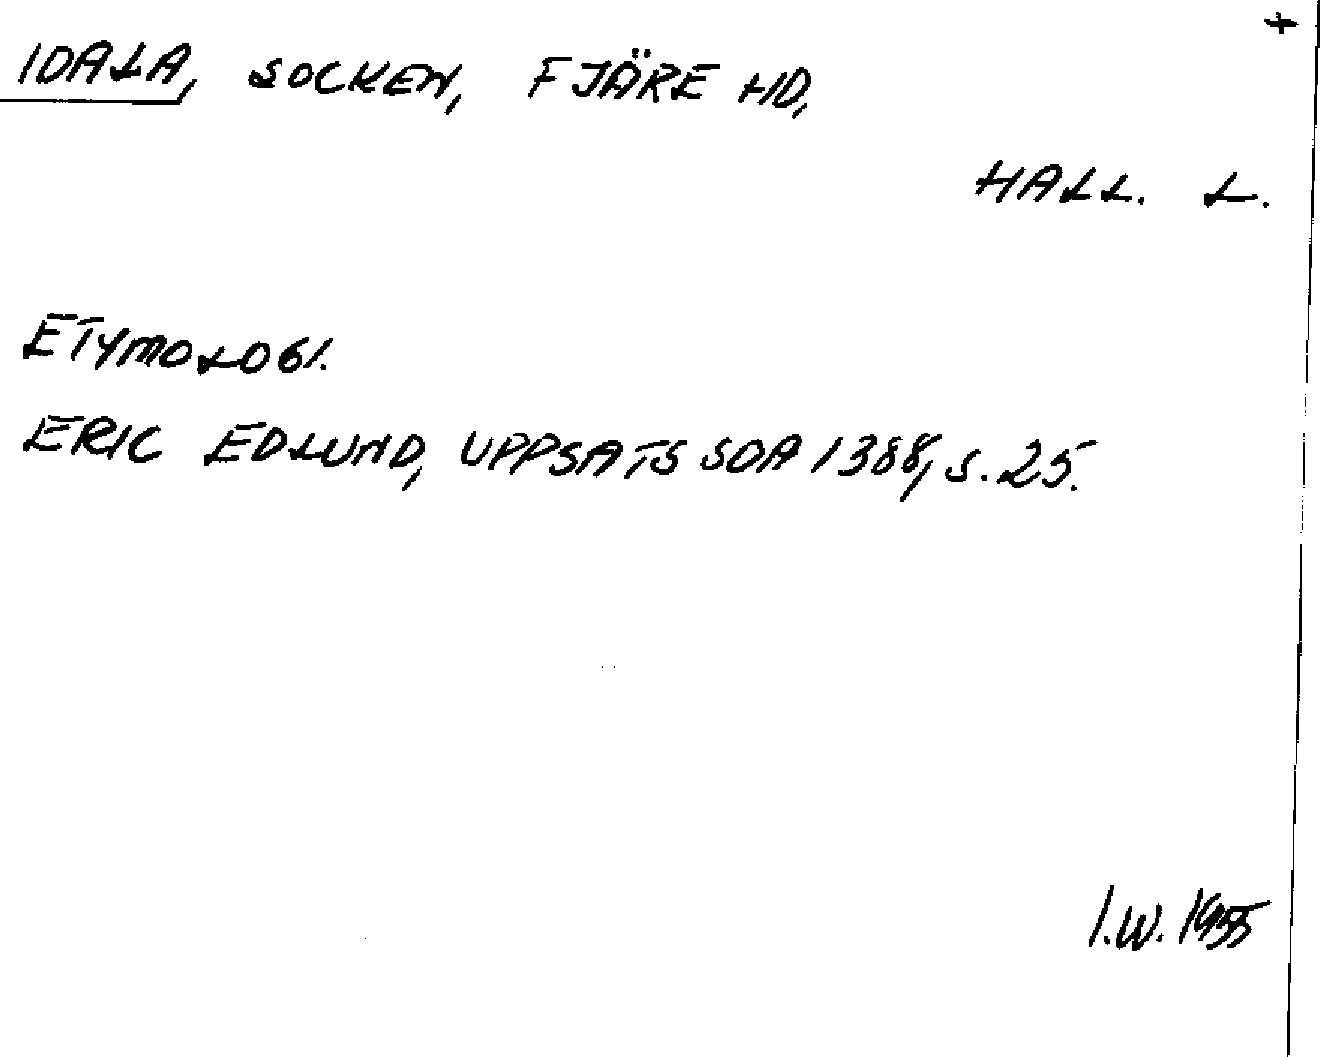 +
IDALA, SOCKEN, FJÄRE HD,
HALL. L.
ETYMOLOGI.
ERIC EDLUND, UPPSATS SOA 1388, S. 25.
I.W. 1955